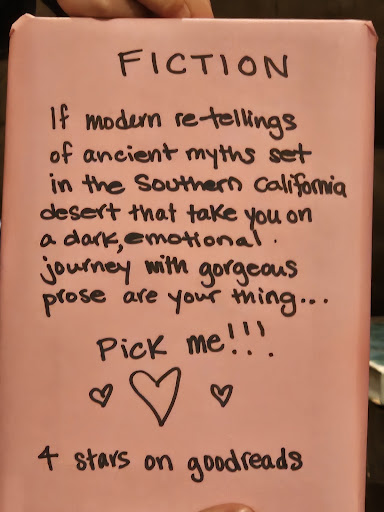 FICTION
If modern re-tellings
of ancient myths set
in the Southern California
desert that take you on
a dark, emotional
journey with gorgeous
prose are your thing...
Pick me!!!
4 stars on goodreads